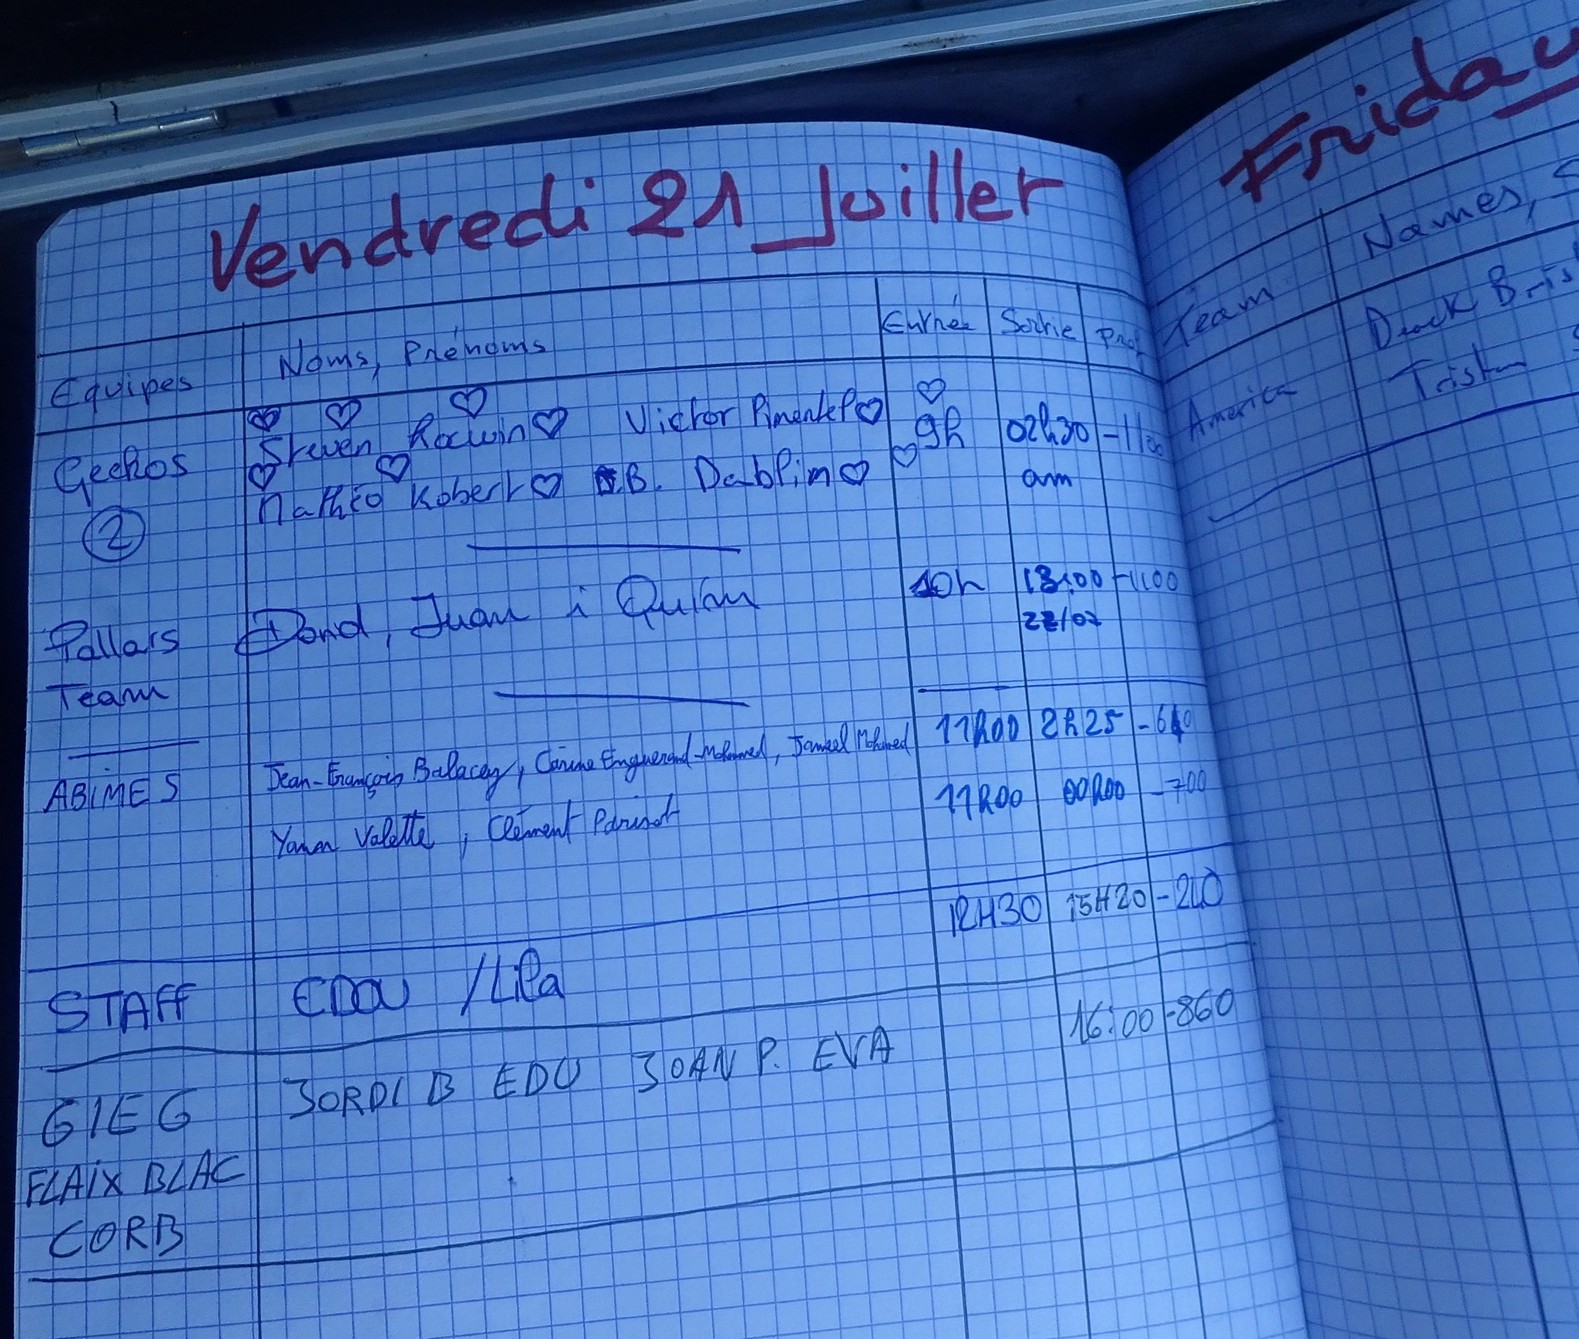 Vendredi 21 Juillet
Equipes Noms, Prénoms Entrée Sortie Prof
Geckos Steven Rocwin Victor Pimentel 9h 02h30 -1100
② Mathéo Robert B. Dablin am
Pallars Dond, Juan i Quim 10h 13:00 -1100
Team 22/07
ABiMES Jean-François Balacey, Carine Enguerand-Mohamed, Jameel Mohamed 11h00 2h25 -640
Yoann Valette, Clément Parisot 11h00 00h00 -700
STAFF EDOU /Lila 12H30 15H20 -240
GIEG JORDI B EDU JOAN P. EVA 16:00 -860
FLAIX BLAC
CORB
Friday
Team Names,
America Derek Bris
Tristan